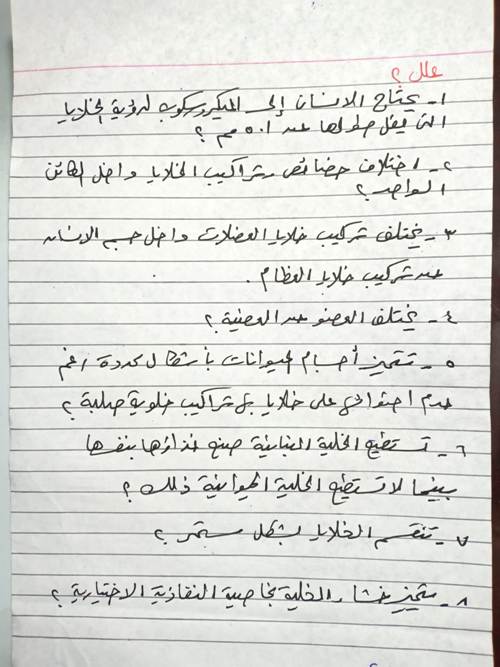 علل ؟
١- يحتاج الانسان إلى الميكروسكوب لرؤية الخلايا
التى يقل طولها عن ٠.١ مم ؟
٢- اختلاف خصائص وتراكيب الخلايا داخل الكائن
الواحد ؟
٣- يختلف تركيب خلايا العضلات داخل جسم الانسان
عن تركيب خلايا العظام .
٤- يختلف العضو عن العضية ؟
٥- تتميز أجسام الحيوانات بأشكال محددة رغم
عدم احتوائها على خلايا بها تراكيب خلوية صلبة ؟
٦- تستطيع الخلية النباتية صنع غذاؤها بنفسها
بينما لا تستطيع الخلية الحيوانية ذلك ؟
٧- تنقسم الخلايا بشكل مستمر ؟
٨- يتميز غشاء الخلية بخاصية النفاذية الاختيارية ؟